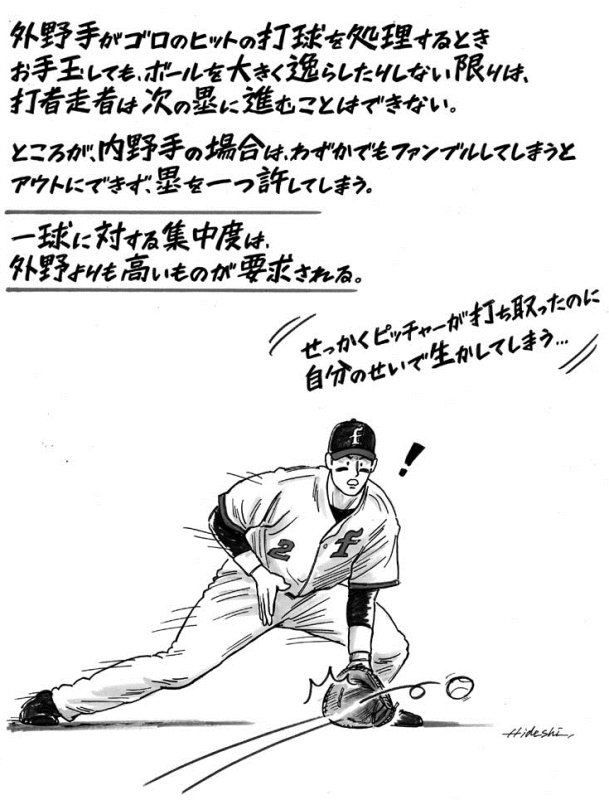 外野手がゴロのヒットの打球を処理するとき
お手玉しても、ボールを大きく逸らしたりしない限りは、
打者走者は次の塁に進むことはできない。
ところが、内野手の場合は、わずかでもファンブルしてしまうと
アウトにできず、塁を一つ許してしまう。
一球に対する集中度は、
外野よりも高いものが要求される。
せっかくピッチャーが打ち取ったのに
自分のせいで生かしてしまう…
!
f
2
f
Hideshi,